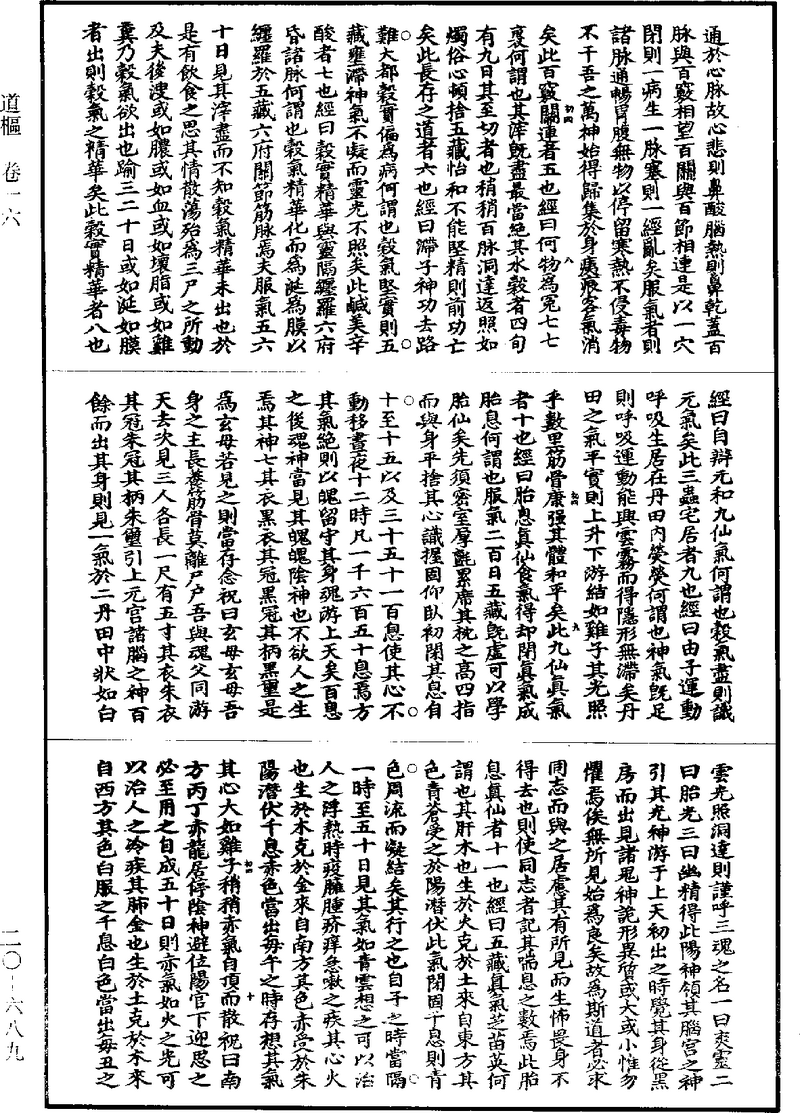 通於心脉故心悲則鼻酸腦熱則鼻乾蓋百
脉與百竅相望百關與百節相連是以一穴
閉則一病生一脉塞則一經亂矣服氣者則
諸脉通暢胃腹無物以停留寒熱不侵毒物
不干吾之萬神始得歸集於身痍瘢客氣消
矣此百竅關連者五也經曰何物為冤七七
裹何謂也其滓旣盡最當絶其水穀者四旬
有九日其至切者也稍稍百脉洞達返照如
燭俗心頓捨五藏怡和不能堅精則前功亡
矣此長存之道者六也經曰滯子神功去路
難大都穀實偏為病何謂也穀氣堅實則五
藏壅滯神氣不凝而靈光不照矣此鹹美辛
酸者七也經曰穀實精華與靈隔纏羅六府
昏諸脉何謂也穀氣精華化而為涎為膜以
纏羅於五藏六府關節筋脉焉夫服氣五六
十日見其滓盡而不知穀氣精華未出也於
是有飲食之思其情散蕩殆為三尸之所動
及夫後溲或如膿或如血或如壞脂或如雞
糞乃穀氣欲出也踰三二十日或如涎如膜
者出則穀氣之精華矣此穀實精華者八也
經曰自辯元和九仙氣何謂也穀氣盡則識
元氣矣此三蟲宅居者九也經曰由子運動
呼吸生居在丹田内熒熒何謂也神氣旣足
則呼吸運動能興雲霧而得隱形無滯矣丹
田之氣平實則上升下游結如雞子其光照
乎數里筋骨康强其體和平矣此九仙真氣
者十也經曰胎息真仙食氣得却閉真氣成
胎息何謂也服氣二百日五藏旣虛可以學
胎仙矣先須密室厚氈累席其枕之高四指
而與身平捨其心識握固仰臥初閉其息自
十至十五以及三十五十一百息使其心不
動移晝夜十二時凡一千六百五十息焉方
其氣絶則以魄留守其身魂游上天矣百息
之後魂神當見其魄魄陰神也不欲人之生
焉其神七其衣黑衣其冠黑冠其柄黑璽是
為玄母若見之則當存念祝曰玄母玄母吾
身之主長養筋骨莫離尸户吾與魂父同游
天去次見三人各長一尺有五寸其衣朱衣
其冠朱冠其柄朱璽引上元宫諸腦之神百
餘而出其身則見一氣於二丹田中狀如白
雲光照洞達則謹呼三魂之名一曰爽靈二
曰胎光三曰幽精得此陽神領其腦宫之神
引其元神游于上天初出之時覺其身從黑
房而出見諸鬼神詭形異質或大或小惟勿
懼焉俟無所見始為良矣故為斯道者必求
同志而與之居應其有所見而生怖畏身不
得去也則使同志者記其喘息之數焉此胎
息真仙者十一也經曰五藏真氣芝苗英何
謂也其肝木也生於火克於土來自東方其
色青蒼受之於陽潛伏此氣閉固千息則青
色周流而凝結矣其行之也自子之時當隔
一時至五十日見其氣如青雲想之可以治
人之浮熱時疫臃腫疥痒急嗽之疾其心火
也生於木克於金來自南方其色赤受於朱
陽潛伏千息赤色當出每午之時存想其氣
其心大如雞子稍稍赤氣自頂而散祝曰南
方丙丁赤龍居停陰神避位陽官下迎思之
必至用之自成五十日則赤氣如火之光可
以治人之冷疾其肺金也生於土克於木來
自西方其色白服之千息白色當出每丑之
道樞 卷一六
二〇-六八九